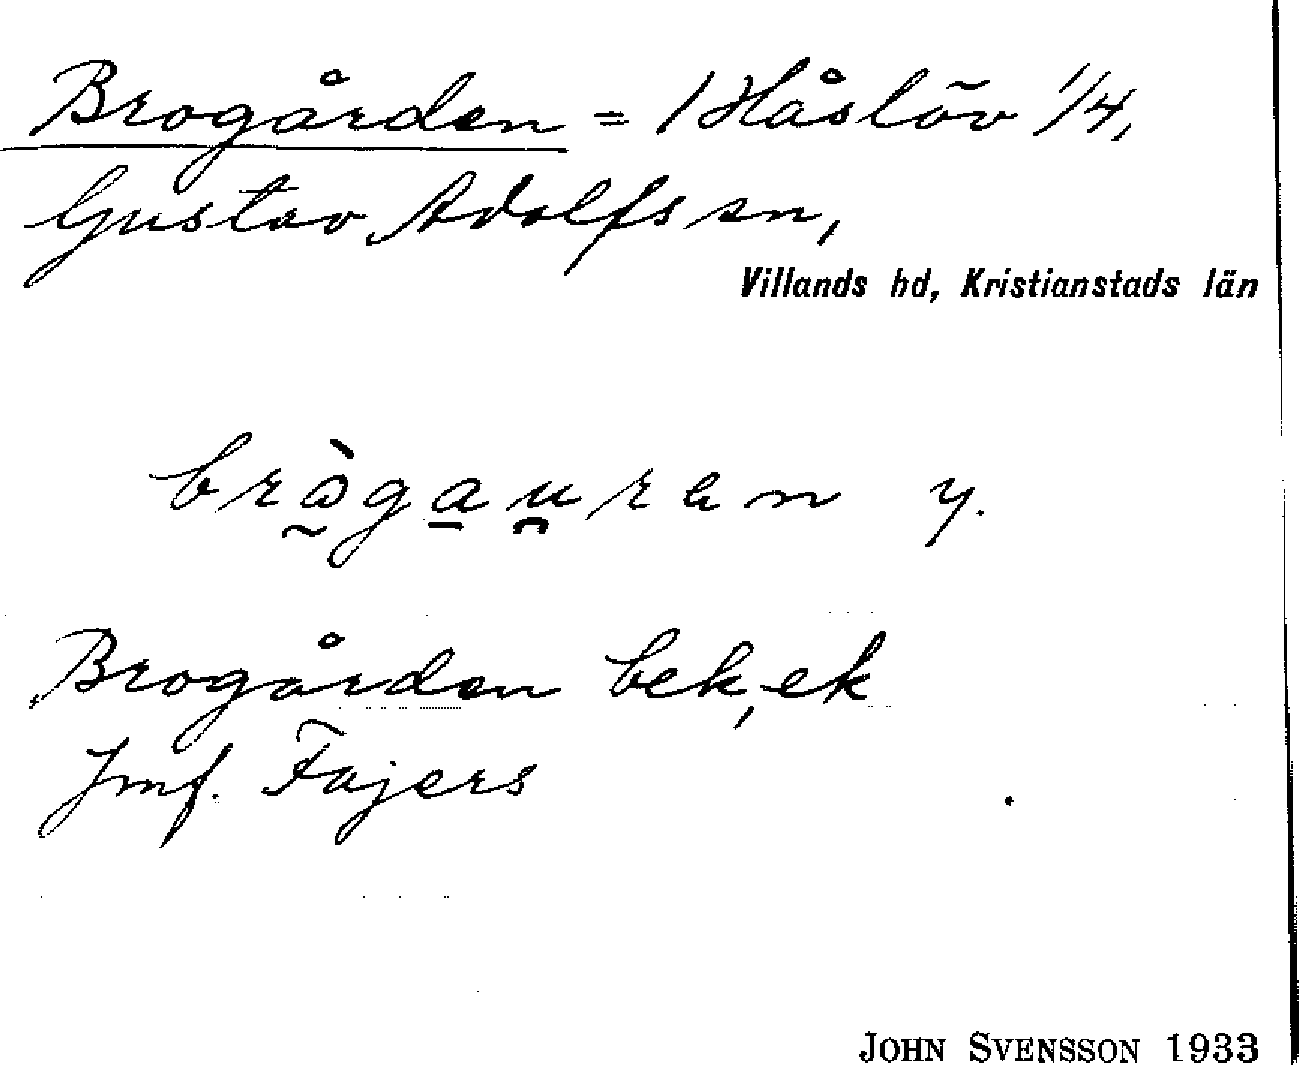 Brogården = 1 Håslöv 1/4,
Gustav Adolfs sn,
Villands hd, Kristianstads län
brògauren y.
Brogården bek, ek
Jmf. Fajers
JOHN SVENSSON 1933